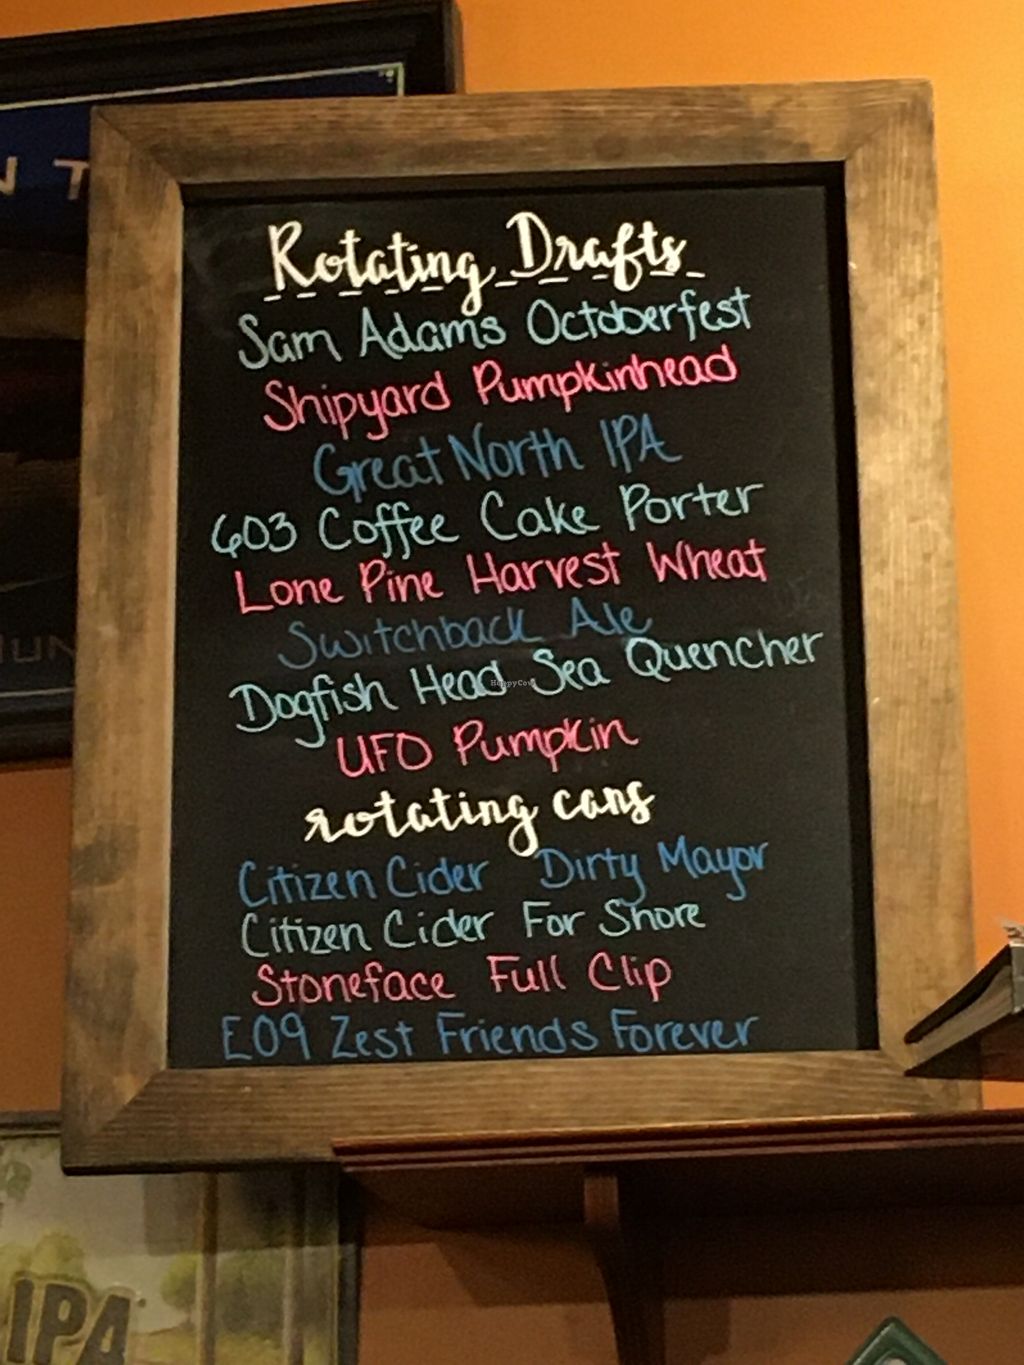 Rotating Drafts
Sam Adams Octoberfest
Shipyard Pumpkinhead
Great North IPA
603 Coffee Cake Porter
Lone Pine Harvest Wheat
Switchback Ale
Dogfish Head Sea Quencher
HappyCow
UFO Pumpkin
rotating cans
Citizen Cider Dirty Mayor
Citizen Cider For Shore
Stoneface Full Clip
E09 Zest Friends Forever
IPA